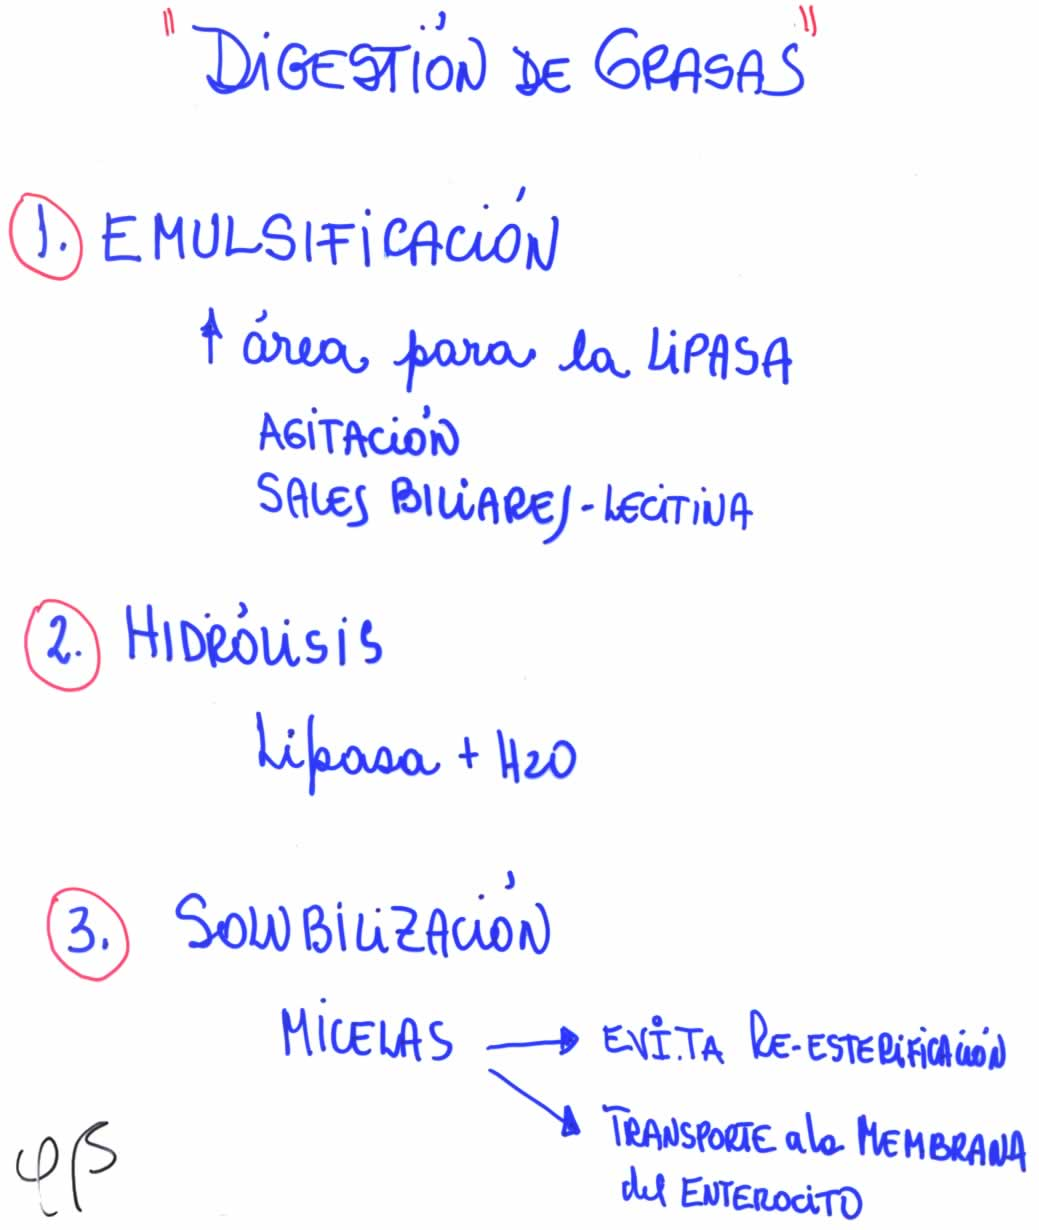 "DIGESTIÓN DE GRASAS"
1. EMULSIFICACIÓN
↑ área para la LIPASA
AGITACIÓN
SALES BILIARES - LECITINA
2. HIDRÓLISIS
Lipasa + H2O
3. SOLUBILIZACIÓN
MICELAS → EVITA RE-ESTERIFICACIÓN
→ TRANSPORTE a la MEMBRANA
del ENTEROCITO